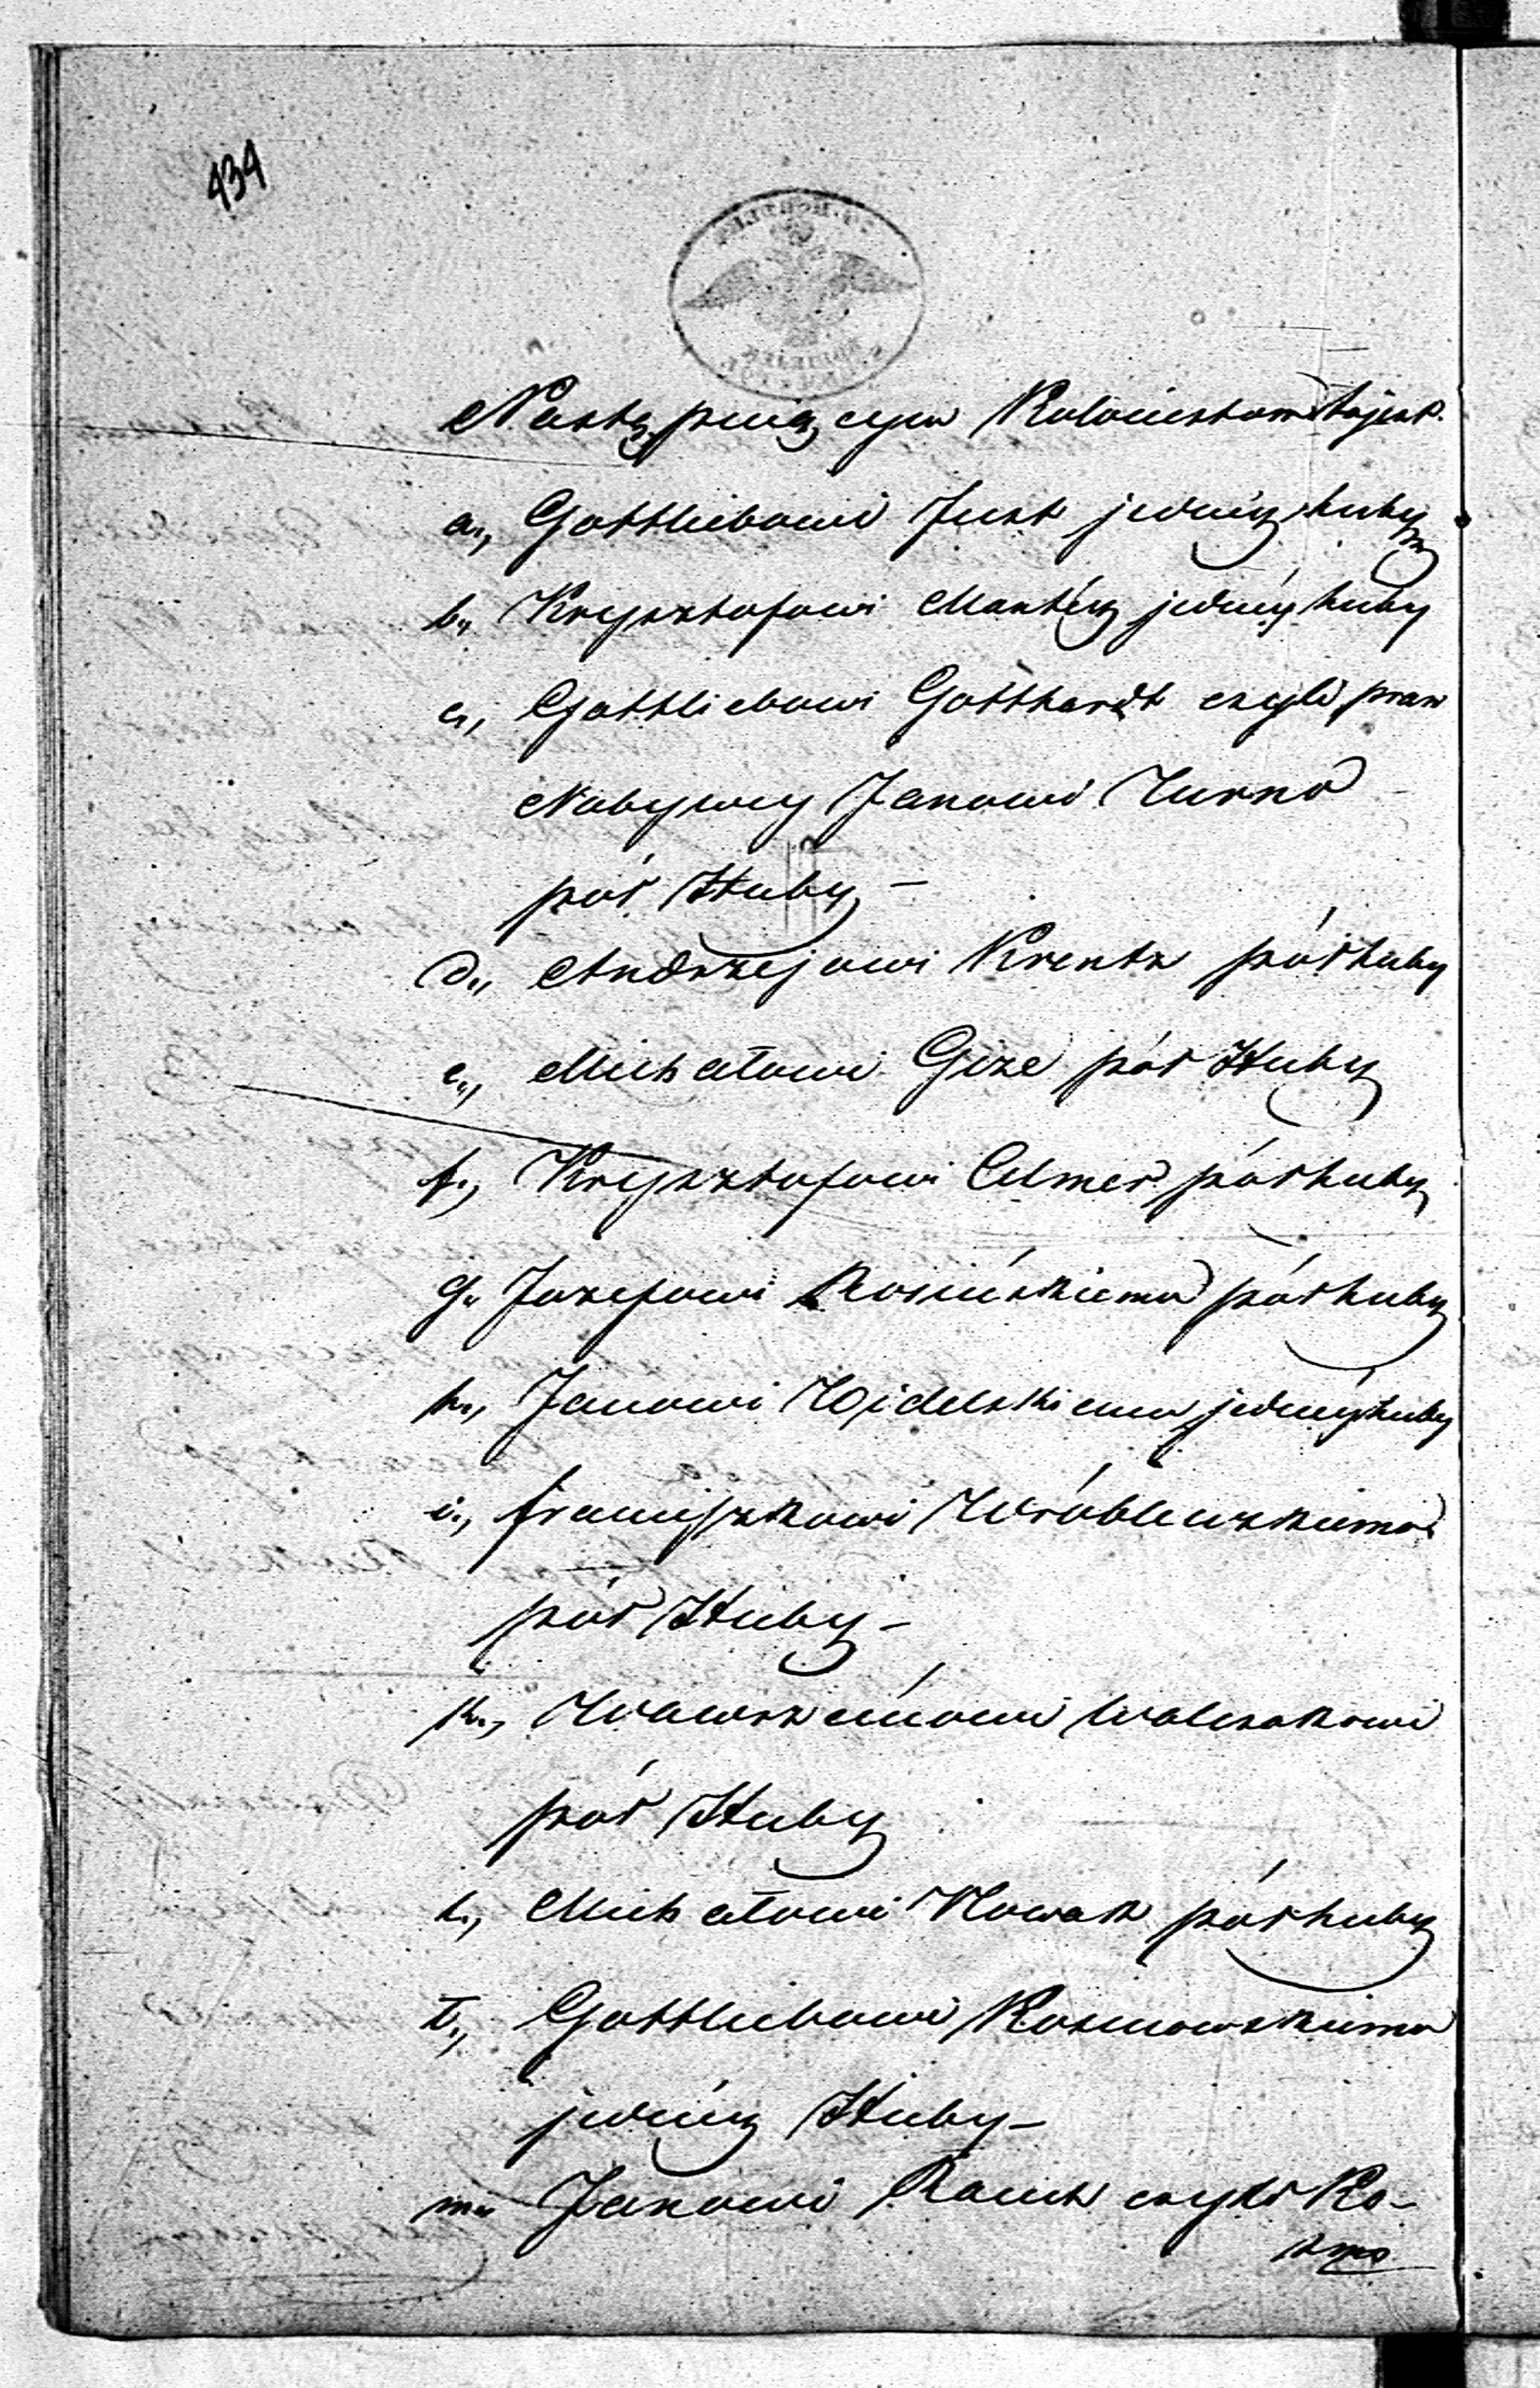 434
Następuiącym Kolonistom to jest.
a., Gottliebowi Just jednéy huby
b., Krysztofowi Mantéy jednéy huby
c., Gottliebowi Gotthardt czyli praw
Nabywcy Janowi
pół Huby –
d., Andrzejowi Krentz pół huby
e., Michałowi Gize pół Huby
f., Krysztofowi Elmer pół huby
g., Jozefowi Rosińskiemu pół huby
h., Janowi jednéy huby
i., Franciszkowi Wróblewskiemu
pół Huby –
k., Wawrzeńcowi Walczakowi
pół Huby
l., Michałowi Nowak pół huby
ł., Gottliebowi Rosnowskiemu
jednéy Huby –
m., Janowi Rauch czyli Ro-